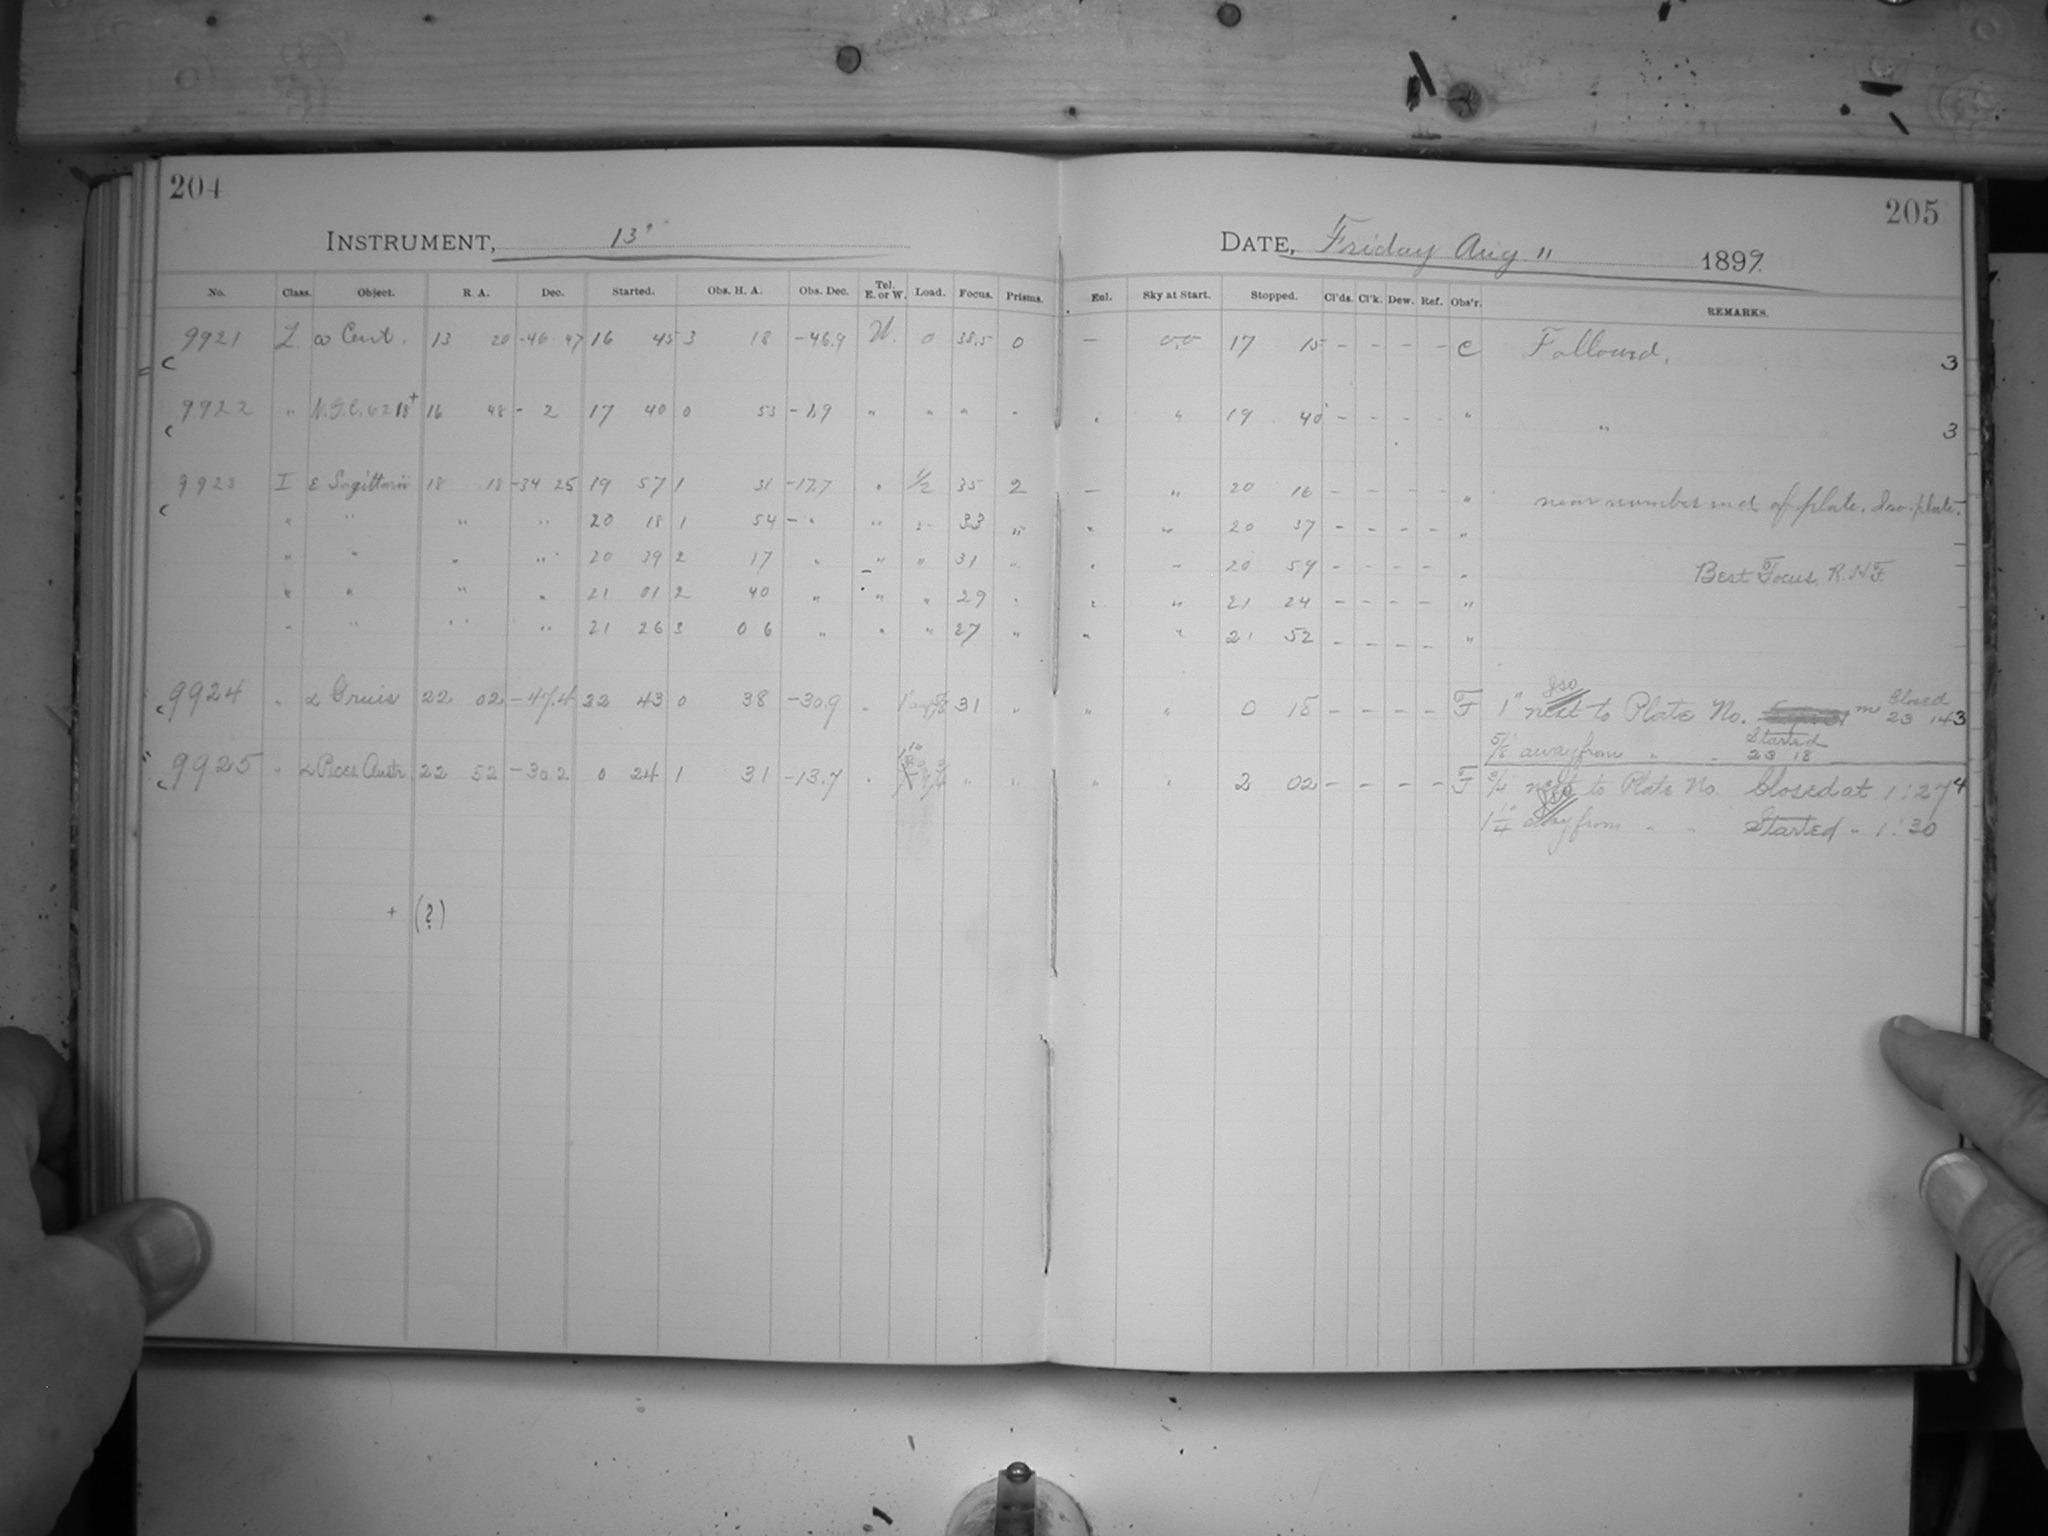 204
205
INSTRUMENT, 13"
DATE, Friday Aug 11 1899.
No. Class. Object. R. A. Dec. Started. Obs. H. A. Obs. Dec. Tel. E. or W. Load. Focus. Prisms. Enl. Sky at Start. Stopped. Cl'ds. Cl'k. Dew. Ref. Obs'r. REMARKS.
9921 L ω Cent. 13 20 -46 47 16 45 3 18 -46.9 W. 0 38.5 0 — 17 15 - - - - C Followed. 3
9922 " N.G.C. 6218+ 16 48 - 2 17 40 0 53 -1.9 " " " " " " 19 40 - - - - " " 3
9923 I ε Sagittarii 18 18 -34 25 19 57 1 31 -17.7 " 1/2 35 2 — " 20 16 - - - - " near number end of plate. Iso. plate.
" " " " 20 18 1 54 - " " " 33 " " " 20 37 - - - - "
" " " " 20 39 2 17 " " " 31 " " " 20 59 - - - - " Best Focus R.H.F.
" " " " 21 01 2 40 " " " 29 " " " 21 24 - - - - "
" " " " 21 26 3 06 " " " 27 " " " 21 52 - - - - "
9924 " α Gruis 22 02 -47.4 22 43 0 38 -30.9 " 31 " " " 0 18 - - - - F 1" next to Plate No. Closed 23 14 3
Iso
5/8 away from " " Started 23 18
9925 " α Pices Austr 22 52 -30.2 0 24 1 31 -13.7 " " " " " 2 02 - - - - F 3/4 next to Plate No. Closed at 1:27 4
Iso
1 1/4 away from " " Started " 1:30
+ (?)